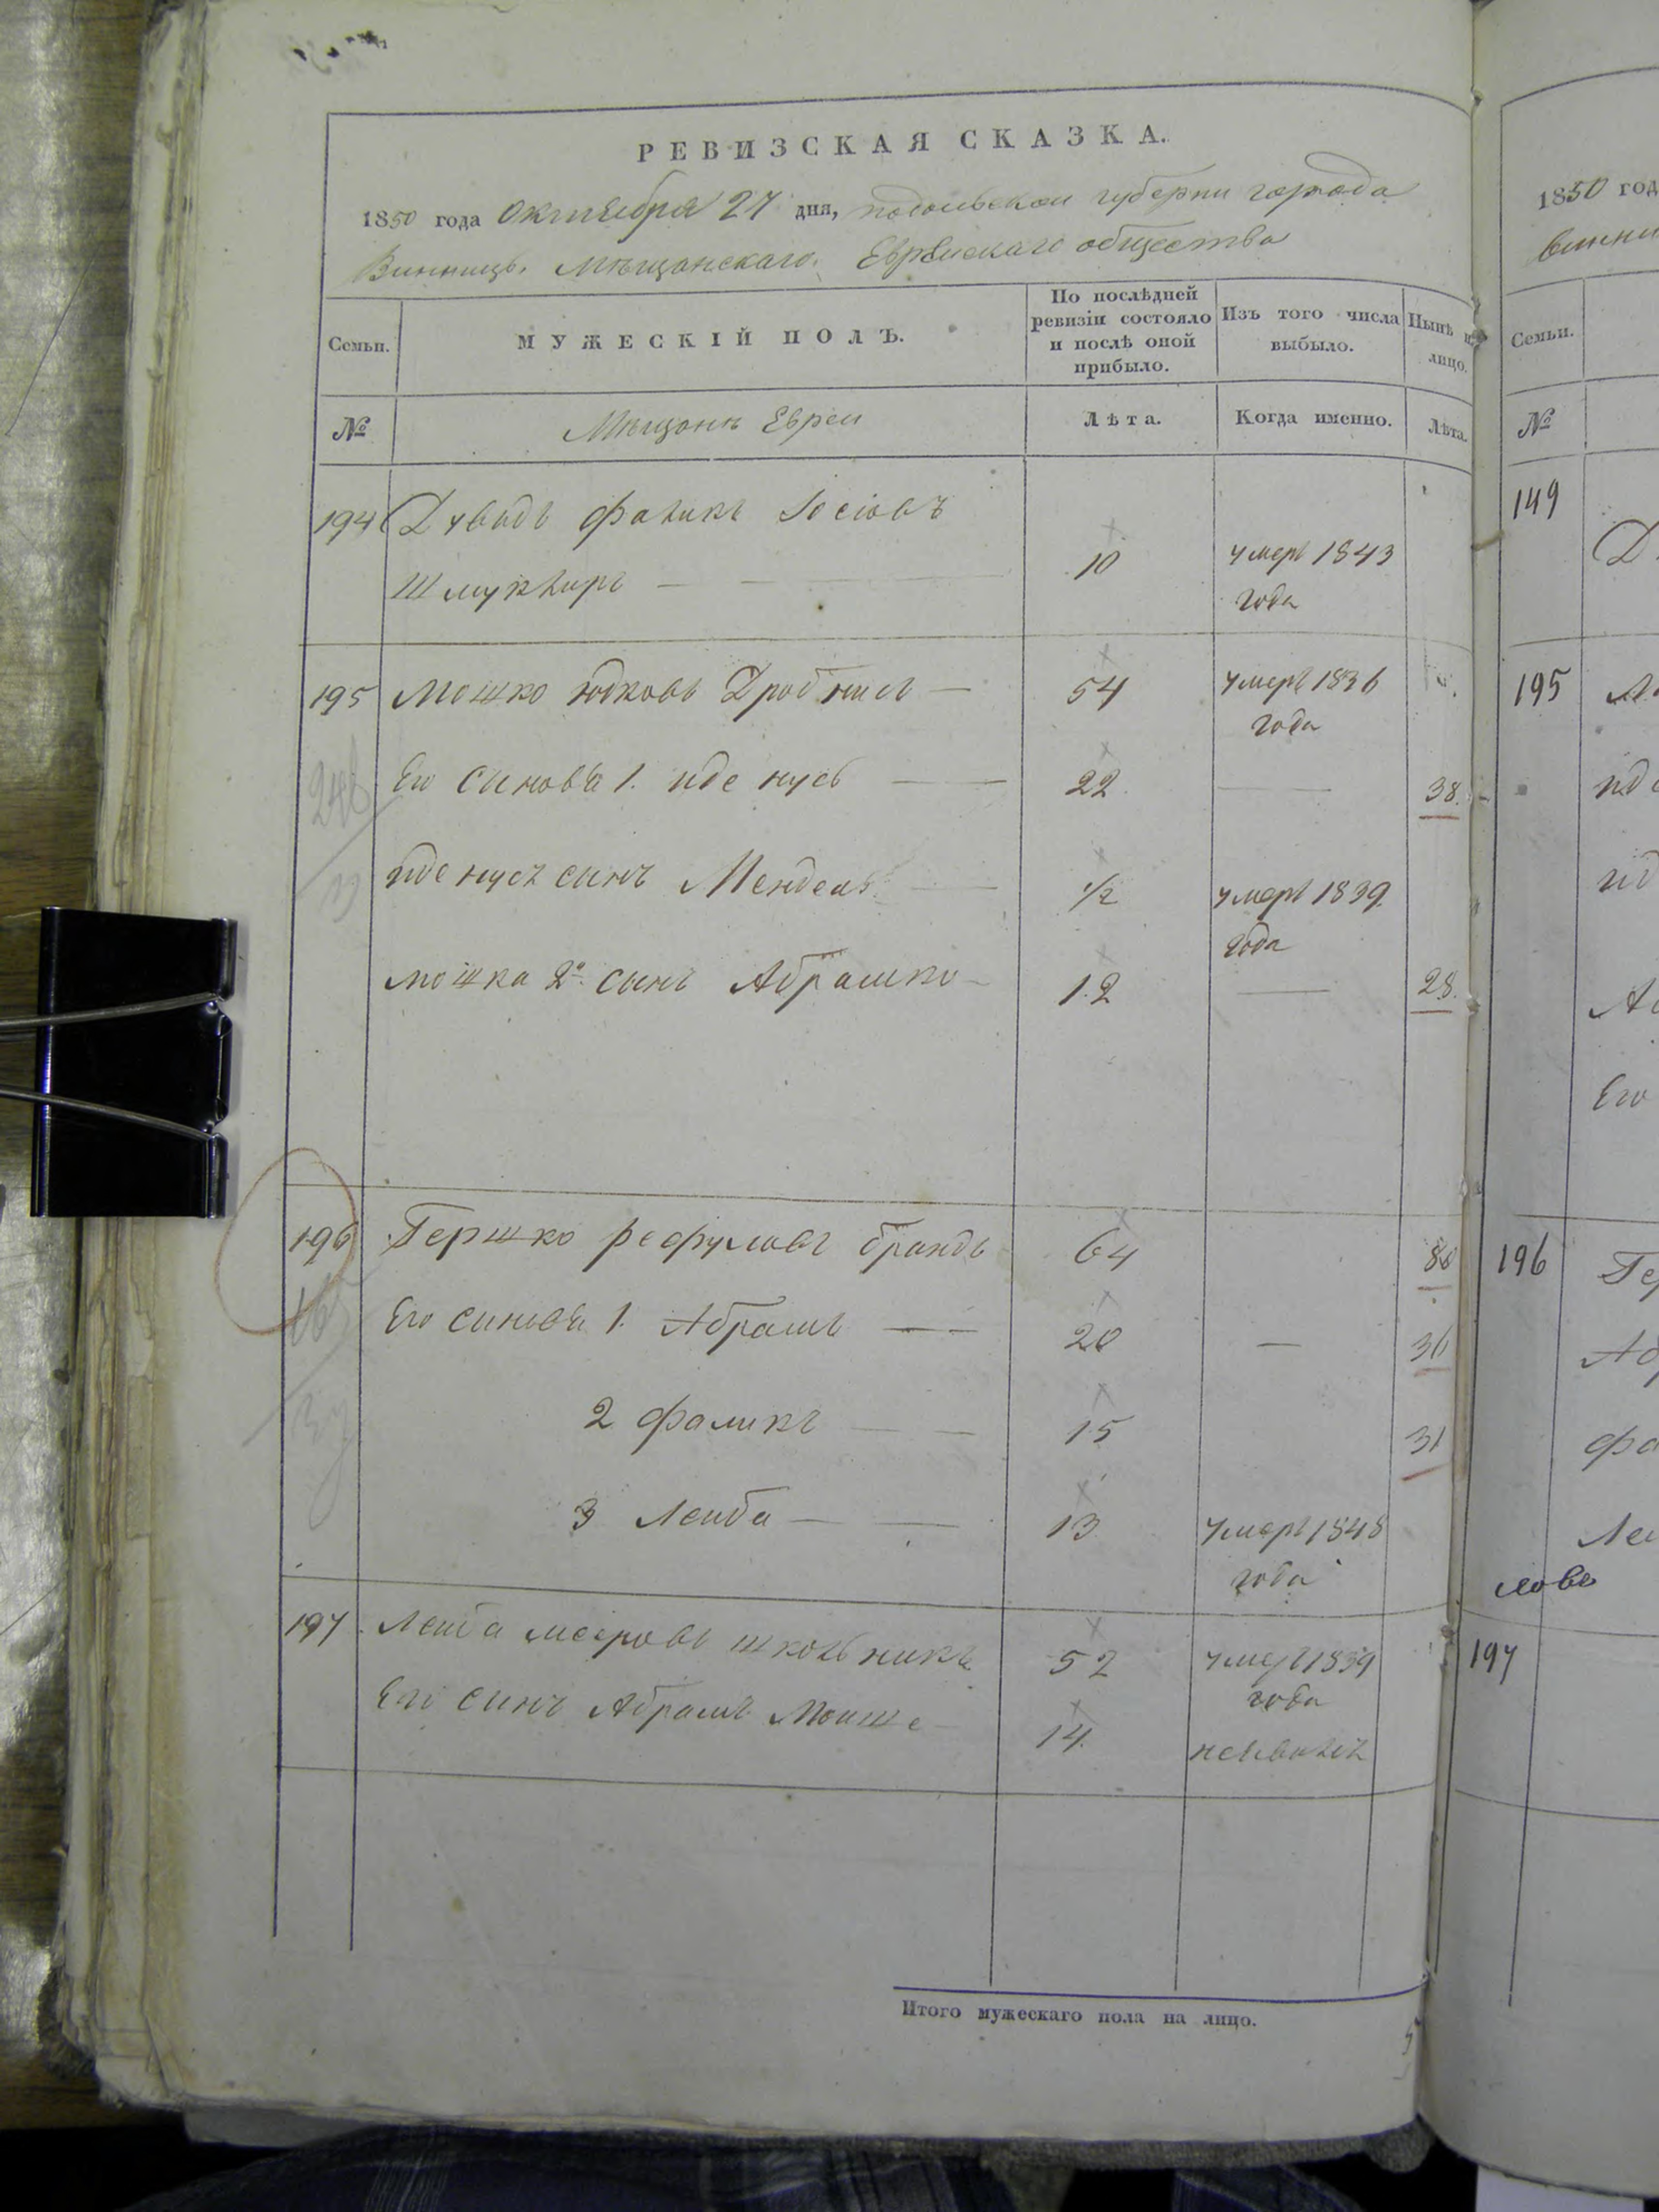 РЕВИЗСКАЯ СКАЗКА.
1850 года Октября 27 дня, подольской губерни города
Винницы Мѣщанскаго Еврейскаго общества
Семьи.
МУЖЕСКІЙ ПОЛЪ.
По послѣдней ревизіи состояло и послѣ оной прибыло.
Изъ того числа выбыло.
Нынѣ на лицо.
№
Мѣщане Евреи
Лѣта.
Когда именно.
Лѣта.
194 Дувидъ Фаликъ Іосіовъ
Шмуклиръ 10 умеръ 1843
года
195 Мошко Юдковъ Дробнисъ 54 умеръ 1836
года
Его синовья 1. Иде нусь 22 38.
Иде нусъ синъ Мендель 1/2 умеръ 1839.
года
Мошка 2й синъ Абрамко 12 28.
196 Гершко Рефуловъ Брандъ 64 80
Его синовья 1. Абрамъ 20 36
2 Фаликъ 15 31
3 Лейба 13 умеръ 1848
года
197 Лейба Меировъ Школьникъ 52 умеръ 1839
года
Его синъ Абрамъ Моише 14.
Итого мужескаго пола на лицо.
1850 год
Семьи.
№
149
195
196
197
Его